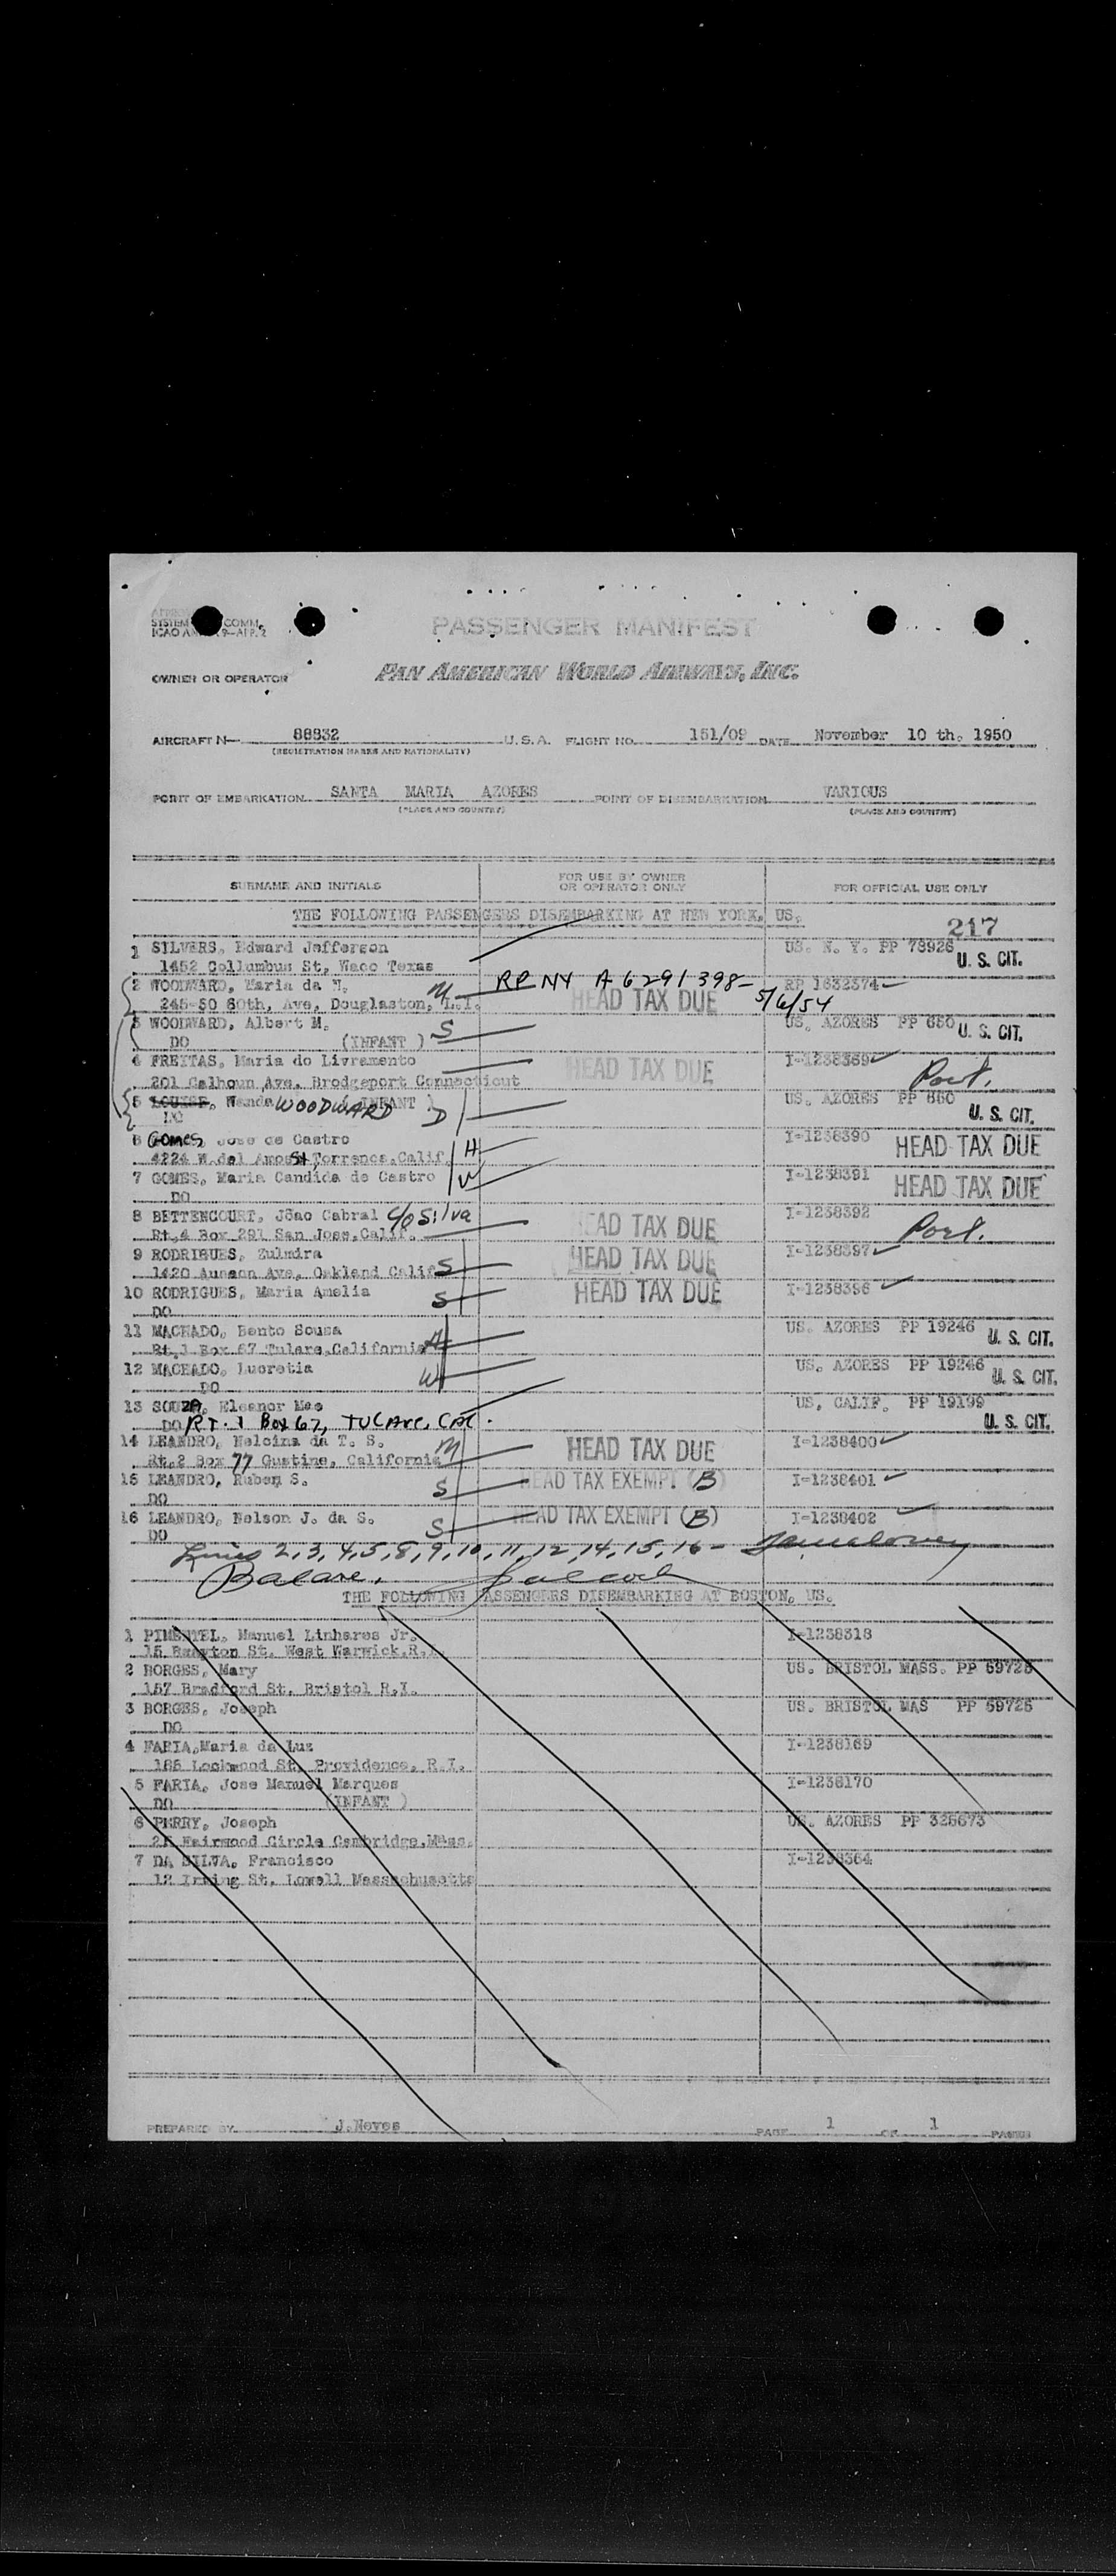 SYSTEM COMM.
PASSENGER MANIFEST
PAN AMERICAN WORLD AIRWAYS, INC.
OWNER OR OPERATOR
AIRCRAFT N— 88832 U.S.A. FLIGHT NO. 151/09 DATE November 10 th. 1950
(REGISTRATION MARKS AND NATIONALITY)
POINT OF EMBARKATION SANTA MARIA AZORES POINT OF DISEMBARKATION VARIOUS
(PLACE AND COUNTRY) (PLACE AND COUNTRY)
SURNAME AND INITIALS FOR USE BY OWNER OR OPERATOR ONLY FOR OFFICIAL USE ONLY
THE FOLLOWING PASSENGERS DISEMBARKING AT NEW YORK, US.
217
1 SILVERS, Edward Jefferson US. N. Y. PP 78926 U. S. CIT.
1452 Collumbus St, Waco Texas
2 WOODWARD, Maria da M RP NY A6291398- RP 1632374
245-50 60th, Ave, Douglaston, L.I. HEAD TAX DUE 5/6/54
3 WOODWARD, Albert M. S US. AZORES PP 650 U. S. CIT.
DO (INFANT )
4 FREITAS, Maria do Livramento HEAD TAX DUE I-1238389 Port.
201 Calhoun Ave. Brodgeport Connecticut
5 LOUISE, Wanda WOODWARD (INFANT ) D US. AZORES PP 650 U. S. CIT.
DO
6 GOMES, Jose de Castro H I-1238390 HEAD TAX DUE
4224 W.del Amo St, Torrence, Calif.
7 GOMES, Maria Candida de Castro W I-1238391 HEAD TAX DUE
DO
8 BETTENCOURT, Jõao Cabral c/o Silva HEAD TAX DUE I-1238392 Port.
Rt.4 Box 291 San Jose, Calif.
9 RODRIGUES, Zulmira S HEAD TAX DUE I-1238397
1420 Auseon Ave, Oakland Calif
10 RODRIGUES, Maria Amelia S HEAD TAX DUE I-1238396
DO
11 MACHADO, Bento Sousa H US. AZORES PP 19246 U. S. CIT.
Rt.1 Box 67 Tulare, California
12 MACHADO, Lucretia W US. AZORES PP 19246 U. S. CIT.
DO
13 SOUZA, Eleanor Mae US, CALIF. PP 19199 U. S. CIT.
DO RT. 1 Box 67, TULARE, CAL.
14 LEANDRO, Nelcina da T. S. M HEAD TAX DUE I-1238400
Rt.2 Box 77 Gustine, California
15 LEANDRO, Ruben S. S HEAD TAX EXEMPT (B) I-1238401
DO
16 LEANDRO, Nelson J. da S. S HEAD TAX EXEMPT (B) I-1238402
DO
Lines 2,3,4,5,8,9,10,11,12,14,15,16 -
THE FOLLOWING PASSENGERS DISEMBARKING AT BOSTON, US.
1 PIMENTEL, Manuel Linhares Jr. I-1238318
St. West Warwick, R.I.
2 BORGES, Mary US. BRISTOL MASS. PP 59725
157 Bradford St. Bristol R.I.
3 BORGES, Joseph US. BRISTOL MAS PP 59725
DO
4 FARIA, Maria da Luz I-1238169
185 Lockwood St, Providence, R.I.
5 FARIA, Jose Manuel Marques I-1238170
DO (INFANT )
6 PERRY, Joseph US. AZORES PP 325673
Circle Cambridge, Mass.
7 DA SILVA, Francisco I-1238364
12 Irving St. Lowell Massachusetts
PREPARED BY J.Neves PAGE 1 OF 1 PAGES